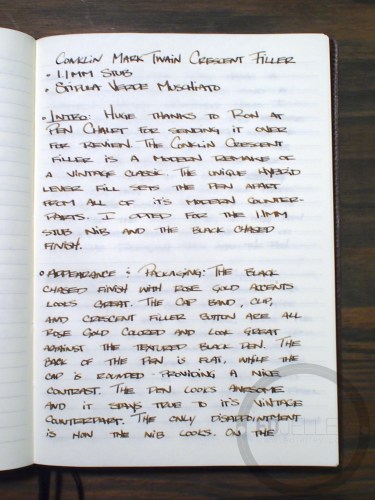 Conklin Mark Twain Crescent Filler
• 1.1mm Stub
• Stipula Verde Muschiato
• Intro: Huge thanks to Ron at
Pen Chalet for sending it over
for review. The Conklin Crescent
Filler is a modern remake of
a vintage classic. The unique hybrid
lever fill sets the pen apart
from all of it's modern counter-
parts. I opted for the 1.1mm
stub nib and the black chased
finish.
• Appearance & Packaging: The black
chased finish with rose gold accents
looks great. The cap band, clip,
and crescent filler button are all
rose gold colored and look great
against the textured black pen. The
back of the pen is flat, while the
cap is rounded providing a nine
contrast. The pen looks awesome
and it stays true to it's vintage
counterpart. The only disappointment
is how the nib looks. On the